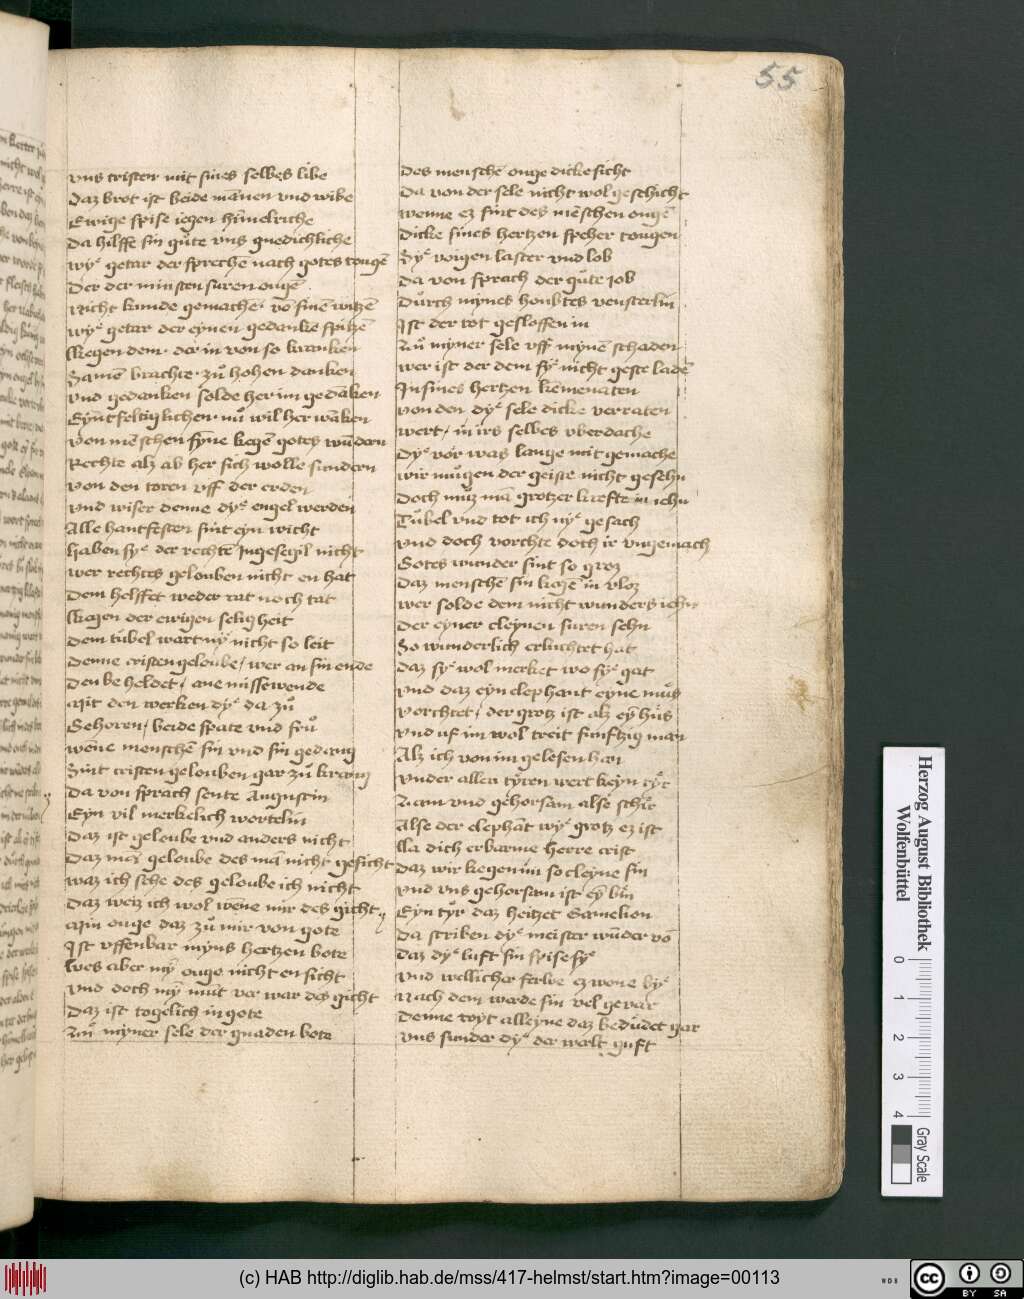 55
vns cristen mit sines selbes libe
Daz brot ist beide mānen vnd wibe
Ewige spise iegen hīmelriche
Da hilffe sin gůte vns gnedichliche
wyͤ getar der sprechē nach gotes tougē
Der der minsten suren ougē
Nicht kunde gemachē vō sinē witzē
wyͤ getar der eynen gedanke spitzē
Kegen dem der in von so kranken
Samē brachte zuͦ hohen danken
vnd gedanken solde her im gedāken
Eynfeltiglichen nuͦ wil her wāken
von mēschen synne kegē gotes wūdern
Rechte alz ab her sich wolle sundern
von den toren vff der erden
vnd wiser denne dyͤ engel werden
Alle hantfesten sint eyn wicht
haben syͤ der rechtē Ingesegil nicht
wer rechtes gelouben nicht en hat
Dem helffet weder rat noch tat
Kegen der ewigen selig heit
Dem tůbel wart nyͤ nicht so leit
Denne cristen geloube / wer an sin ende
Den be heldet / ane missewende
Mit den werken dyͤ da zuͦ
Gehoren / beide spate vnd fruͦ
wēne menschē sin vnd sin gedang
Sint cristen gelouben gar zuͦ krang
Da von sprach sente Augustin
Eyn vil merkelich wortelin
Daz ist geloube vnd anders nicht
Daz mā geloube des mā nicht gesicht
waz ich sehe des geloube ich nicht
Daz weiz ich wol wēne mir des gicht
Min ouge daz zuͦ mir von gote
Ist vffenbar myns hertzen bote
wes aber mȳ ouge nicht en sicht
vnd doch mȳ mut vor war des gicht
Daz ist togelich in gote
Zuͦ myner sele der gnaden bote
Des menschē ouge dicke sicht
Da von der sele nicht wol geschicht
wenne ez sint des mēschen ougē
Dicke sines hertzen speher tougen
Syͤ voigen laster vnd lob
Da von sprach der gůte iob
Durch mynes houbtes vensterlin
Ist der tot geslossen in
Zuͦ myner sele vff mynē schaden
wer ist der dem syͤ nicht geste ladē
In sines hertzen kēmenaten
von den dyͤ sele dicke verraten
wert / in irs selbes vberdache
Dyͤ vor was lange mit gemache
wir můgen der geiste nicht gesehn
Doch můz mā grotzer krefte in iehn
Tůbel vnd tot ich nyͤ gesach
vnd doch vorchte doch ir vngemach
Gotes wunder sint so groz
Daz menschē sin kegē in vloz
wer solde dem nicht wunders iehn
Der eyner cleynen suren sehn
So wunderlich erluchtet hat
Daz syͤ wol merket wo syͤ gat
vnd daz eyn elephant eyne mus
vorchtet / der grotz ist alz eȳ hus
vnd uf im wol treit funftzig man
Alz ich von im gelesen han
vnder allen tyren wert keyn tyr
Zam vnd gehorsam alse schir
Alse der elephāt wyͤ grotz ez ist
la dich erbarme herre crist
Daz wir kegen im so cleyne sin
vnd vns gehorsam ist eȳ bin
Eyn tyr daz heitzet Gamelion
Da scriben dyͤ meister wūder vō
Daz dyͤ luft sin spise syͤ
vnd wellicher ferbe ez wone byͤ
Nach dem werde sin vel gevar
Denne royt alleyne daz bedudet gar
vns sunder dyͤ der werlt guft
Herzog August Bibliothek
Wolfenbüttel
0 1 2 3 4
Gray Scale
(c) HAB http://diglib.hab.de/mss/417-helmst/start.htm?image=00113
WDB
cc BY SA